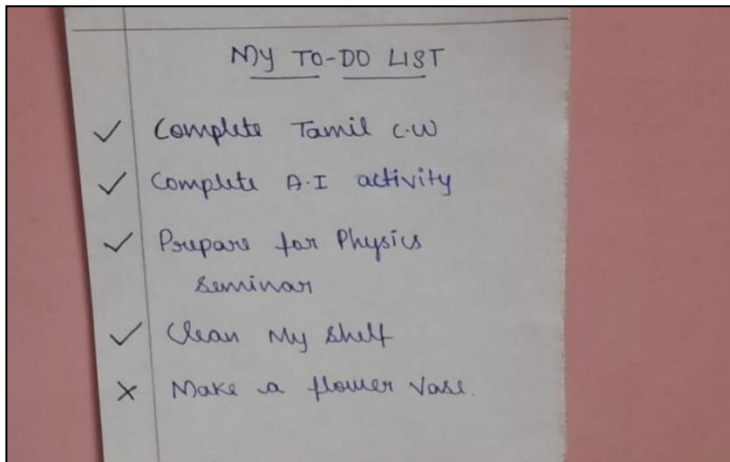 MY TO-DO LIST
✓ Complete Tamil C.W
✓ Complete A.I activity
✓ Prepare for Physics
seminar
✓ Clean My shelf
✗ Make a flower vase.